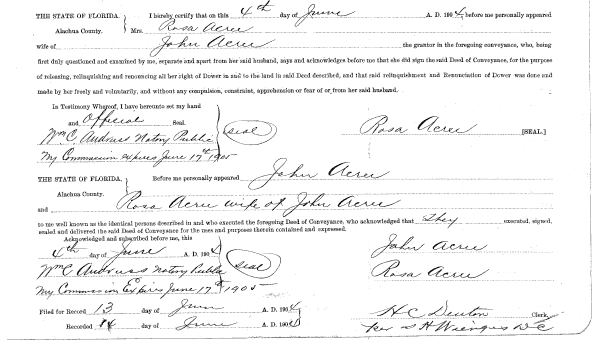 THE STATE OF FLORIDA. } I hereby certify that on this 4th day of June A. D. 1904 before me personally appeared
Alachua County. Mrs. Rosa Acree
wife of John Acree the grantor in the foregoing conveyance, who, being
first duly questioned and examined by me, separate and apart from her said husband, says and acknowledges before me that she did sign the said Deed of Conveyance, for the purpose
of releasing, relinquishing and renouncing all her right of Dower in and to the land in said Deed described, and that said relinquishment and Renunciation of Dower was done and
made by her freely and voluntarily, and without any compulsion, constraint, apprehension or fear of or from her said husband.
In Testimony Whereof, I have hereunto set my hand
and Official Seal.
Wm C. Andruss Notary Public (seal) Rosa Acree [SEAL.]
My Commission expires June 17th 1905
THE STATE OF FLORIDA, } Before me personally appeared John Acree
Alachua County.
and Rosa Acree wife of John Acree
to me well known as the identical persons described in and who executed the foregoing Deed of Conveyance, who acknowledged that they executed, signed,
sealed and delivered the said Deed of Conveyance for the uses and purposes therein contained and expressed.
Acknowledged and subscribed before me, this
4th day of June A. D. 1904 John Acree
Wm C Andruss Notary Public (seal) Rosa Acree
My Commission Expires June 17th 1905
Filed for Record 13 day of June A. D. 1904 H C Denton Clerk
Recorded 14 day of June A. D. 1904 Per S H Wienges D C